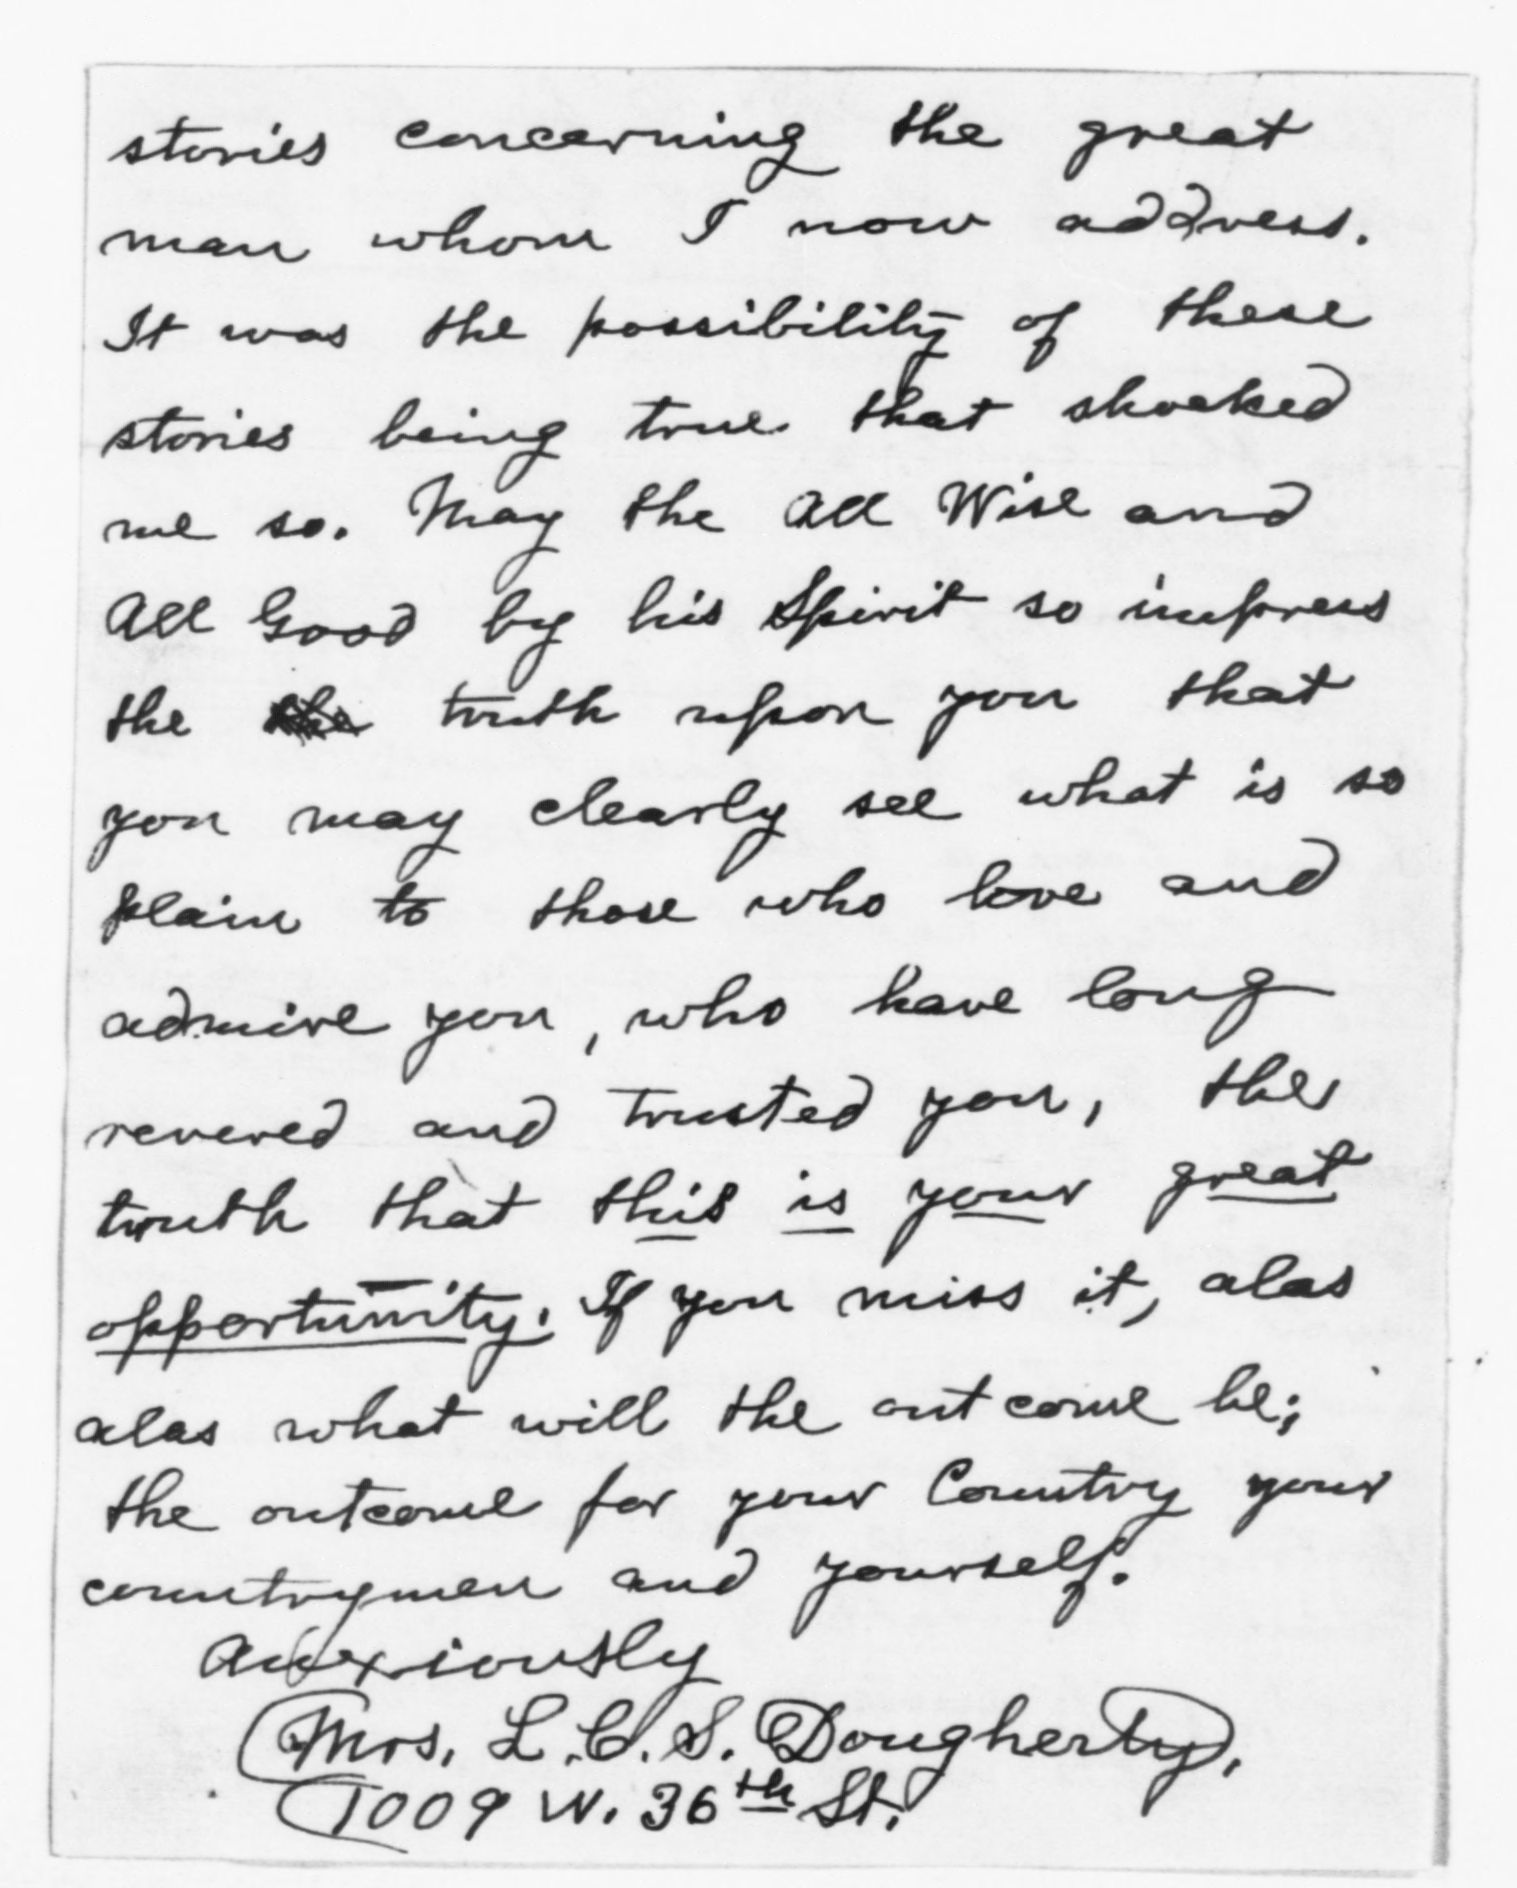 stories concerning the great
man whom I now address.
It was the possibility of these
stories being true that shocked
me so. May the All Wise and
All Good by his Spirit so impress
the the truth upon you that
you may clearly see what is so
plain to those who love and
admire you, who have long
revered and trusted you, the
truth that this is your great
opportunity. If you miss it, alas
alas what will the outcome be;
the outcome for your Country your
countrymen and yourself.
Anxiously
Mrs. L. C. S. Dougherty,
1009 W. 36th St.